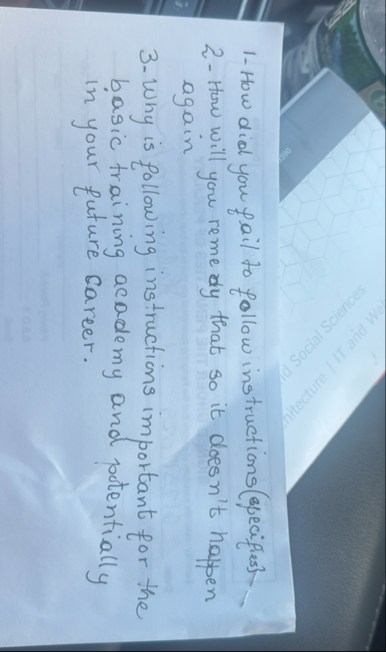 1- How did you fail to follow instructions (specifics)
2- How will you remedy that so it doesn't happen
again
3- Why is following instructions important for the
basic training academy and potentially
in your future career.
d Social Sciences
hitecture | IT and We